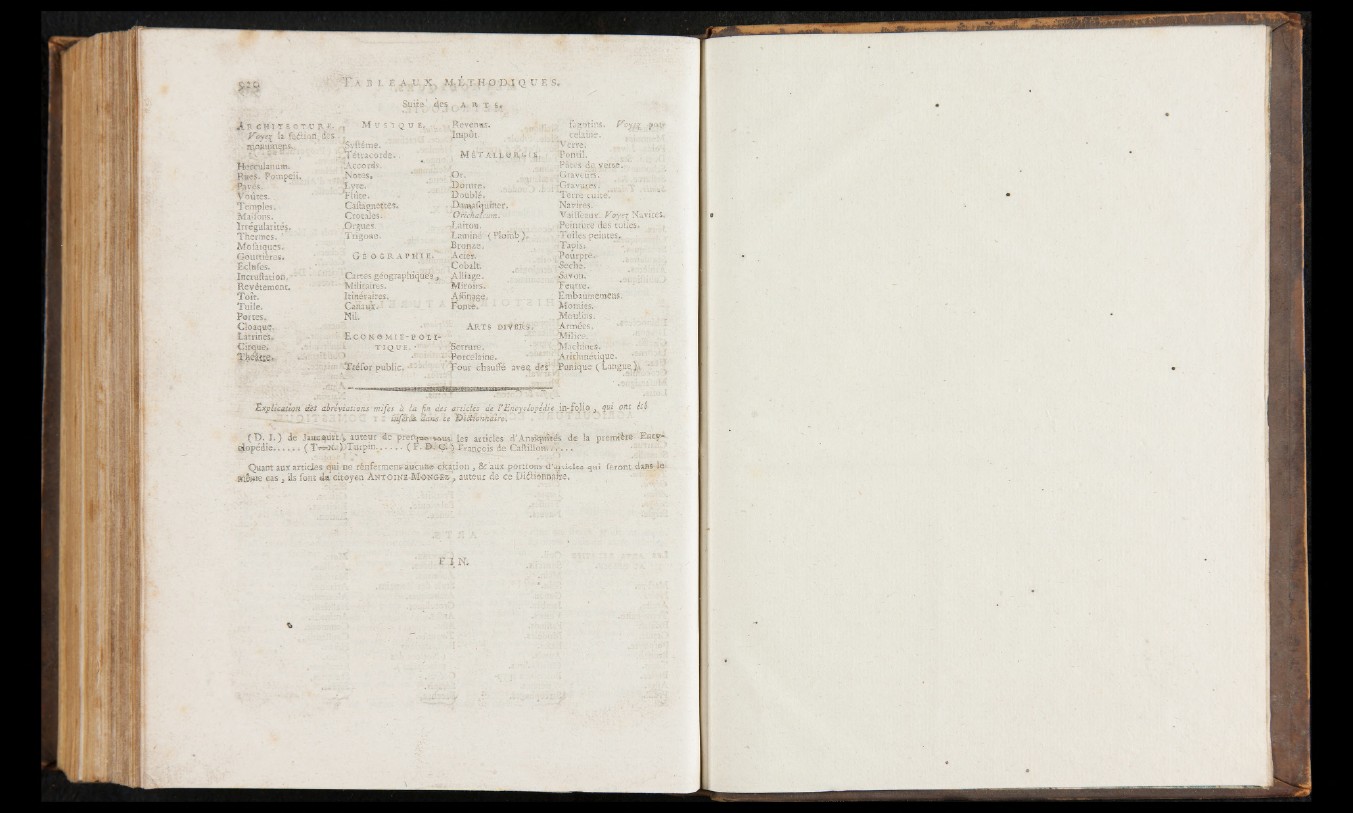 TABLEAUX MÉTHODIQUES.
Suite des ARTS.
ARCHITECTURE.
Voyez la section des
monumens.
Herculanum.
Rues. Pompeii.
Pavés.
Voûtes.
Temples.
Maisons.
Irrégularités.
Thermes.
Mosaïques.
Gouttières.
Ecluses.
Incrustation.
Revêtement.
Toit.
Tuile.
Portes.
Cloaque.
Latrines.
Cirque.
Théâtre.
MUSIQUE.
Systême.
Tétracorde.
Accords.
Notes.
Lyre.
Flûte.
Castagnettes.
Crotales.
Orgues.
Trigone.
GEOGRAPHIE.
Cartes géographiques,
Militaires.
Itinéraires.
Canaux.
Nil.
ECONOMIE-POLI-
TIQUE.
Trésor public.
Revenus.
Impôt.
MÉTALLURGIE.
Or.
Dorure.
Doublé.
Damasquiner.
Orichalcum.
Laiton.
Laminé (Plomb).
Bronze.
Acier.
Cobalt.
Alliage.
Miroirs.
Affinage.
Fonte.
ARTS DIVERS.
Serrure.
Porcelaine.
Four chauffé avec des
fagotins. Voyez por-
celaine.
Verre.
Pontil.
Pâtes de verre.
Graveurs.
Gravures.
Terre cuite.
Navires.
Vaisseaux. Voyez Navires.
Peinture des toiles.
Toiles peintes.
Tapis.
Pourpre.
Soche.
Savon.
Feutre.
Embaumemens.
Momies.
Moulins.
Armées.
Milice.
Machines.
Arithmétique.
Punique (Langue).
Explication des abréviations mises à la fin des articles de l'Encyclopédie in-folio, qui ont été
insérés dans ce Dictionnaire.
(D. J.) de Jaucourt, auteur de presque tous les articles d'Antiquités de la première Ency-
clopédie...... (Turpin.) Turpin...... (F. D. C.) François de Castillon......
Quant aux articles qui ne renferment aucune citation, & aux portions d'articles qui seront dans le
même cas, ils sont du citoyen ANTOINE MONGEZ, auteur de ce Dictionnaire.
FIN.